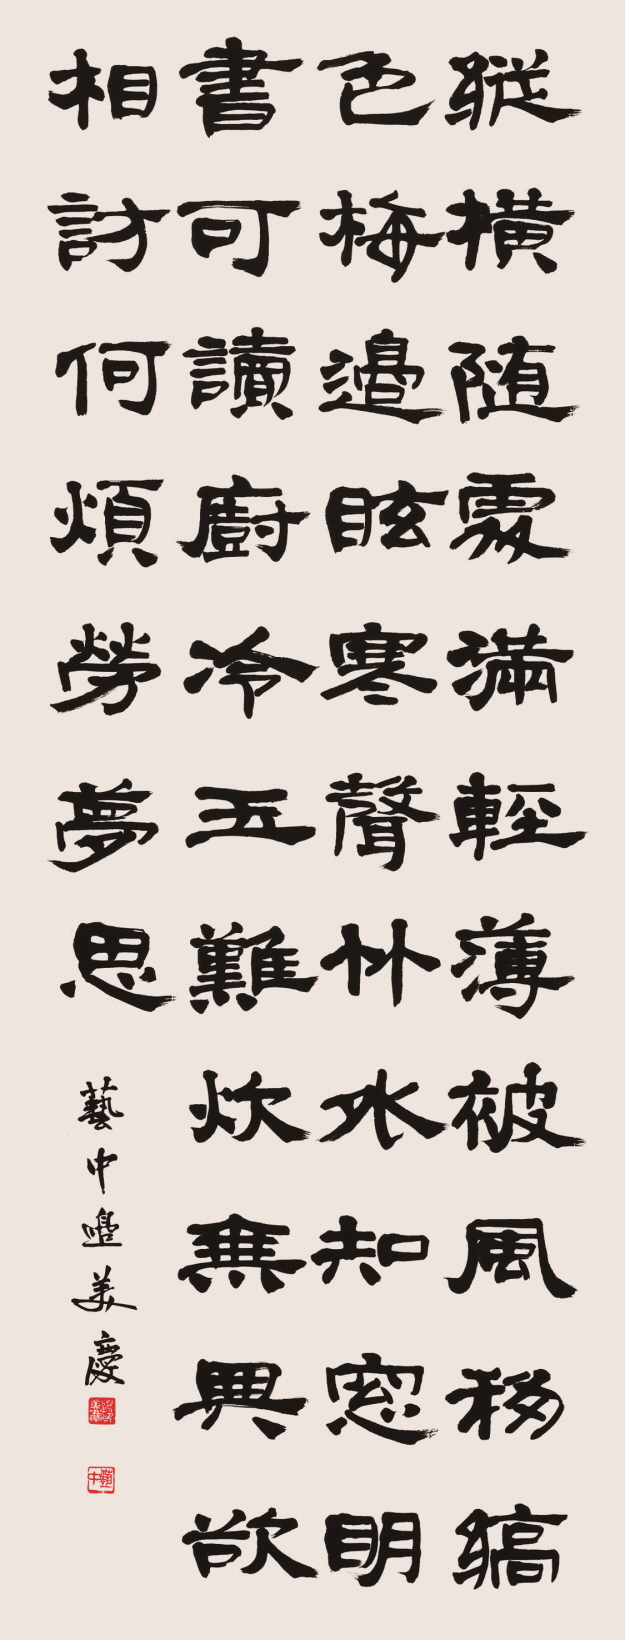 縱橫随處滿輕薄被風移縞
色梅邊眩寒聲竹外知窓明
書可讀廚冷玉難炊無興欲
相訪何煩勞夢思
藝中邊美慶